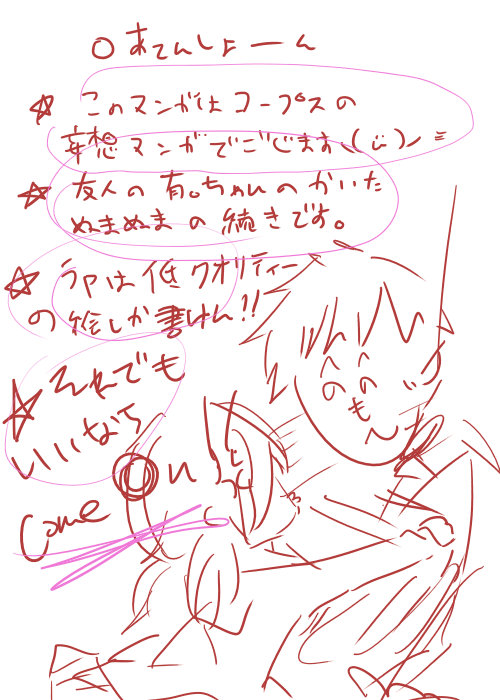 ○あてんしょーん
☆このマンガはコープスの
妄想マンガでございます(ü)ノ=
☆友人の有。ちゃんのかいた
ぬまぬまの続きです。
☆うpは低クオリティー
の絵しか書けん!!
☆それでも
いいなら
come on
へへ
のの
も
へ